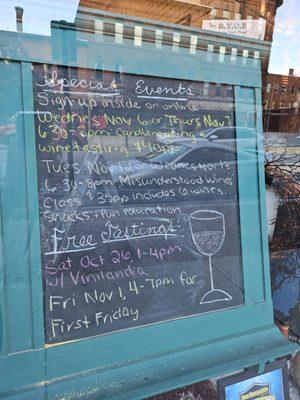 B.Y.O.B
Special Events
Sign up inside or online
Wednes Nov 6 or Thurs Nov 7
6:30-8pm Candlemaking &
winetasting $40pp
Tues Nov 12 or Wednes Nov 13
6:30-8pm Misunderstood Wines
Class $35pp includes 6 wines,
Snacks + fun education
Free Tastings:
Sat Oct 26, 1-4pm
w/ Vinilandia
Fri Nov 1, 4-7pm for
First Friday